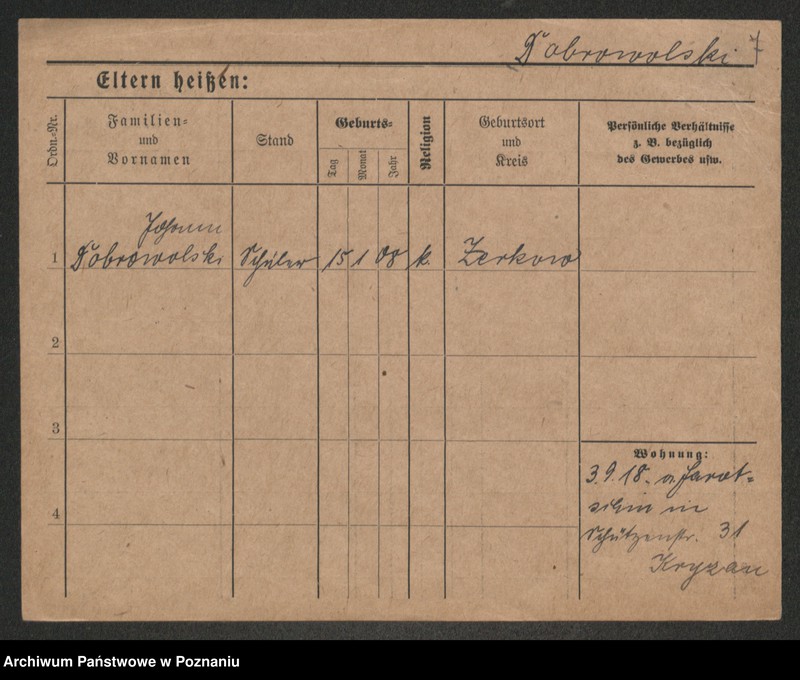 Dobrowolski 7
Eltern heißen:
Ordn.-Nr.
Familien- und Vornamen
Stand
Geburts-
Tag
Monat
Jahr
Religion
Geburtsort und Kreis
Persönliche Verhältnisse
z. B. bezüglich
des Gewerbes usw.
Johann
1 Dobrowolski Schüler 15 1 08 k. Zerkow
2
3
4
Wohnung:
3.9.18. a. Jarot-
schin in
Schützenstr. 31
Kryzan
Archiwum Państwowe w Poznaniu